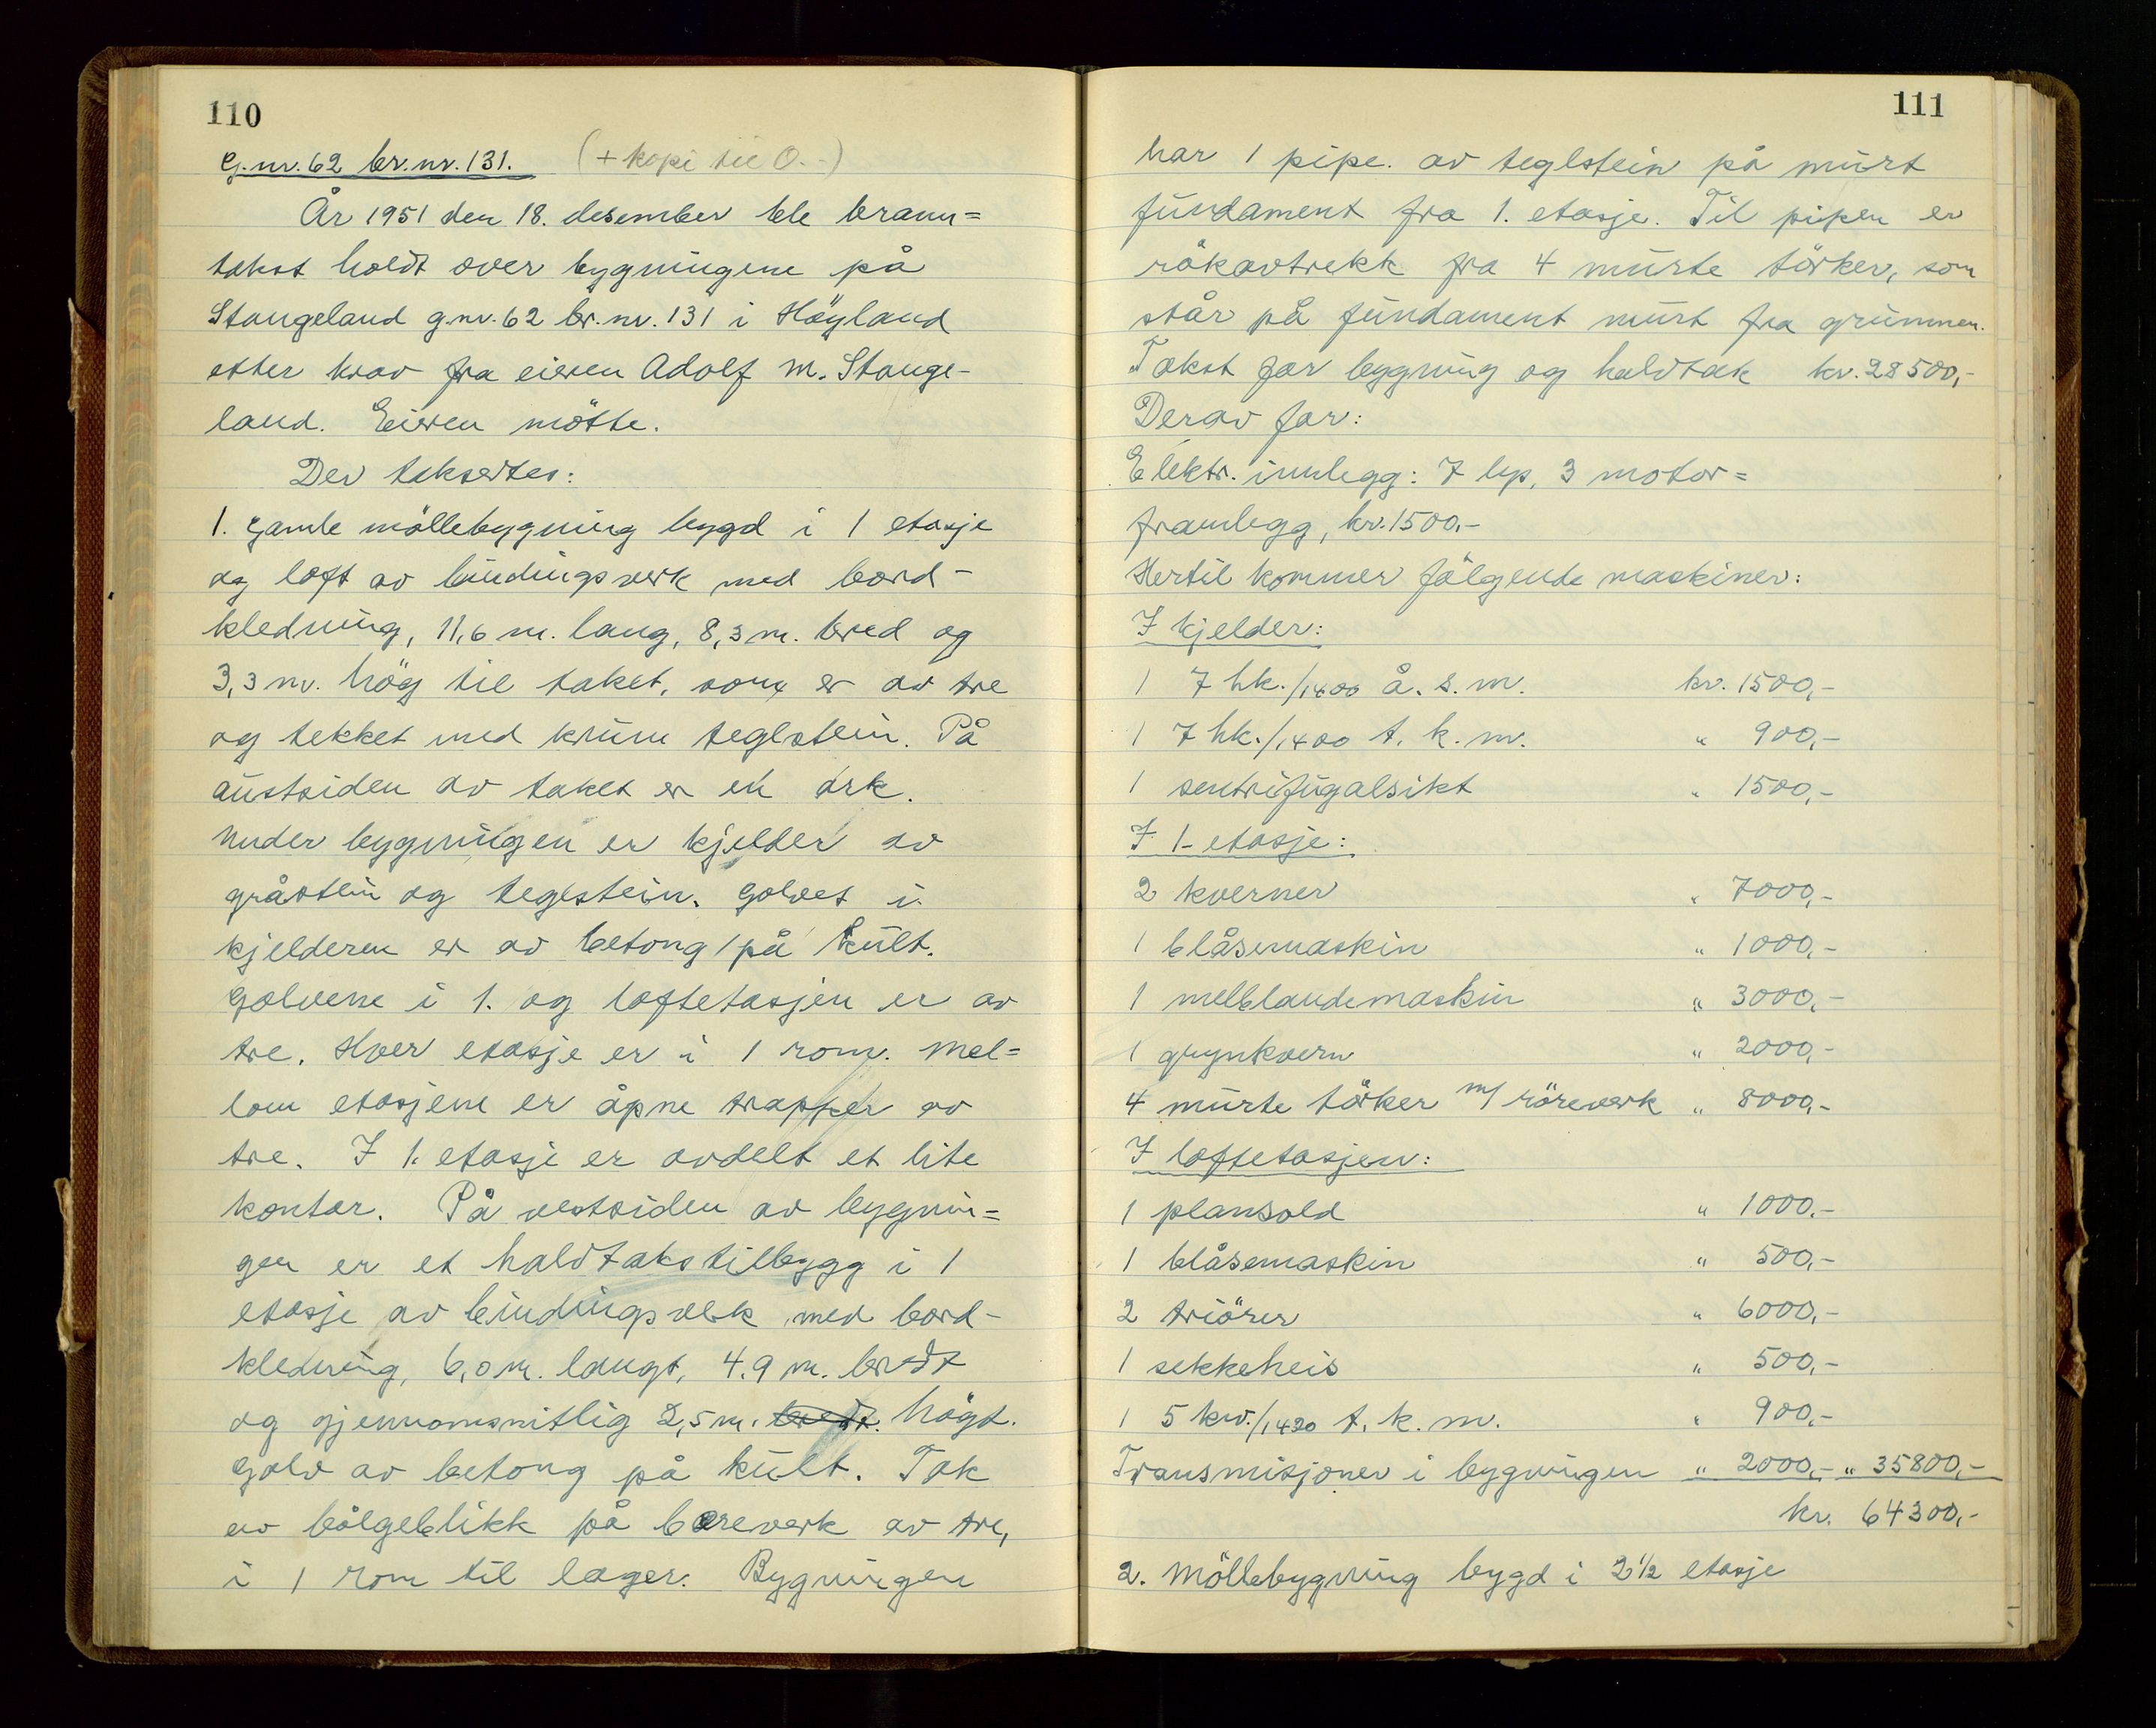 110
G.nr. 62 br.nr. 131. (+ kopi til O.-)
År 1951 den 18. desember ble brann=
takst holdt over bygningene på
Stangeland g.nr. 62 br.nr. 131 i Höyland
etter krav fra eieren Adolf M. Stange-
land. Eieren mötte.
Der taksertes:
1. Gamle möllebygning bygd i 1 etasje
og loft av bindingsverk med bord-
kledning, 11,6 m. lang, 8,3 m. bred og
3,3 m. hög til taket, som er av tre
og tekket med krum teglstein. På
austsiden av taket er en ark.
Under bygningen er kjelder av
gråstein og teglstein. Golvet i
kjelderen er av betong på kult.
Golvene i 1. og loftetasjen er av
tre. Hver etasje er i 1 rom. Mel=
lom etasjene er åpne trapper av
tre. I 1. etasje er avdelt et lite
kontor. På vestsiden av bygnin=
gen er et halvtakstilbygg i 1
etasje av bindingsverk med bord-
kledning, 6,0 m. langt, 4.9 m. bredt
og gjennomsnitlig 2,5 m. bredt. högt.
Golv av betong på kult. Tak
av bölgeblikk på bæreverk av tre,
i 1 rom til lager. Bygningen
111
har 1 pipe. av teglstein på murt
fundament fra 1. etasje. Til pipen er
rökavtrekk fra 4 murte törker, som
står på fundament murt fra grunnen.
Takst for bygning og halvtak kr. 28500,-
Derav for:
Elektr. innlegg: 7 lys, 3 motor=
framlegg, kr. 1500.-
Hertil kommer fölgende maskiner:
I kjelder:
1 7 hk./1400 å. s. m. kr. 1500,-
1 7 hk./1400 t. k. m. " 900,-
1 sentrifugalsikt " 1500,-
I 1. etasje:
2 kverner " 7000,-
1 blåsemaskin " 1000,-
1 melblandemaskin " 3000,-
1 grynkvern " 2000,-
4 murte törker m/ röreverk " 8000,-
I loftetasjen:
1 plansold " 1000.-
1 blåsemaskin " 500,-
2 triörer " 6000,-
1 sekkeheis " 500,-
1 5 kw./1420 t. k. m. " 900,-
Transmisjoner i bygningen " 2000,- " 35800,-
kr. 64300,-
2. Möllebygning bygd i 2½ etasje